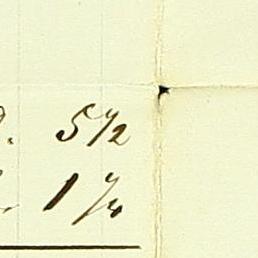 5 1/2
1 1/4